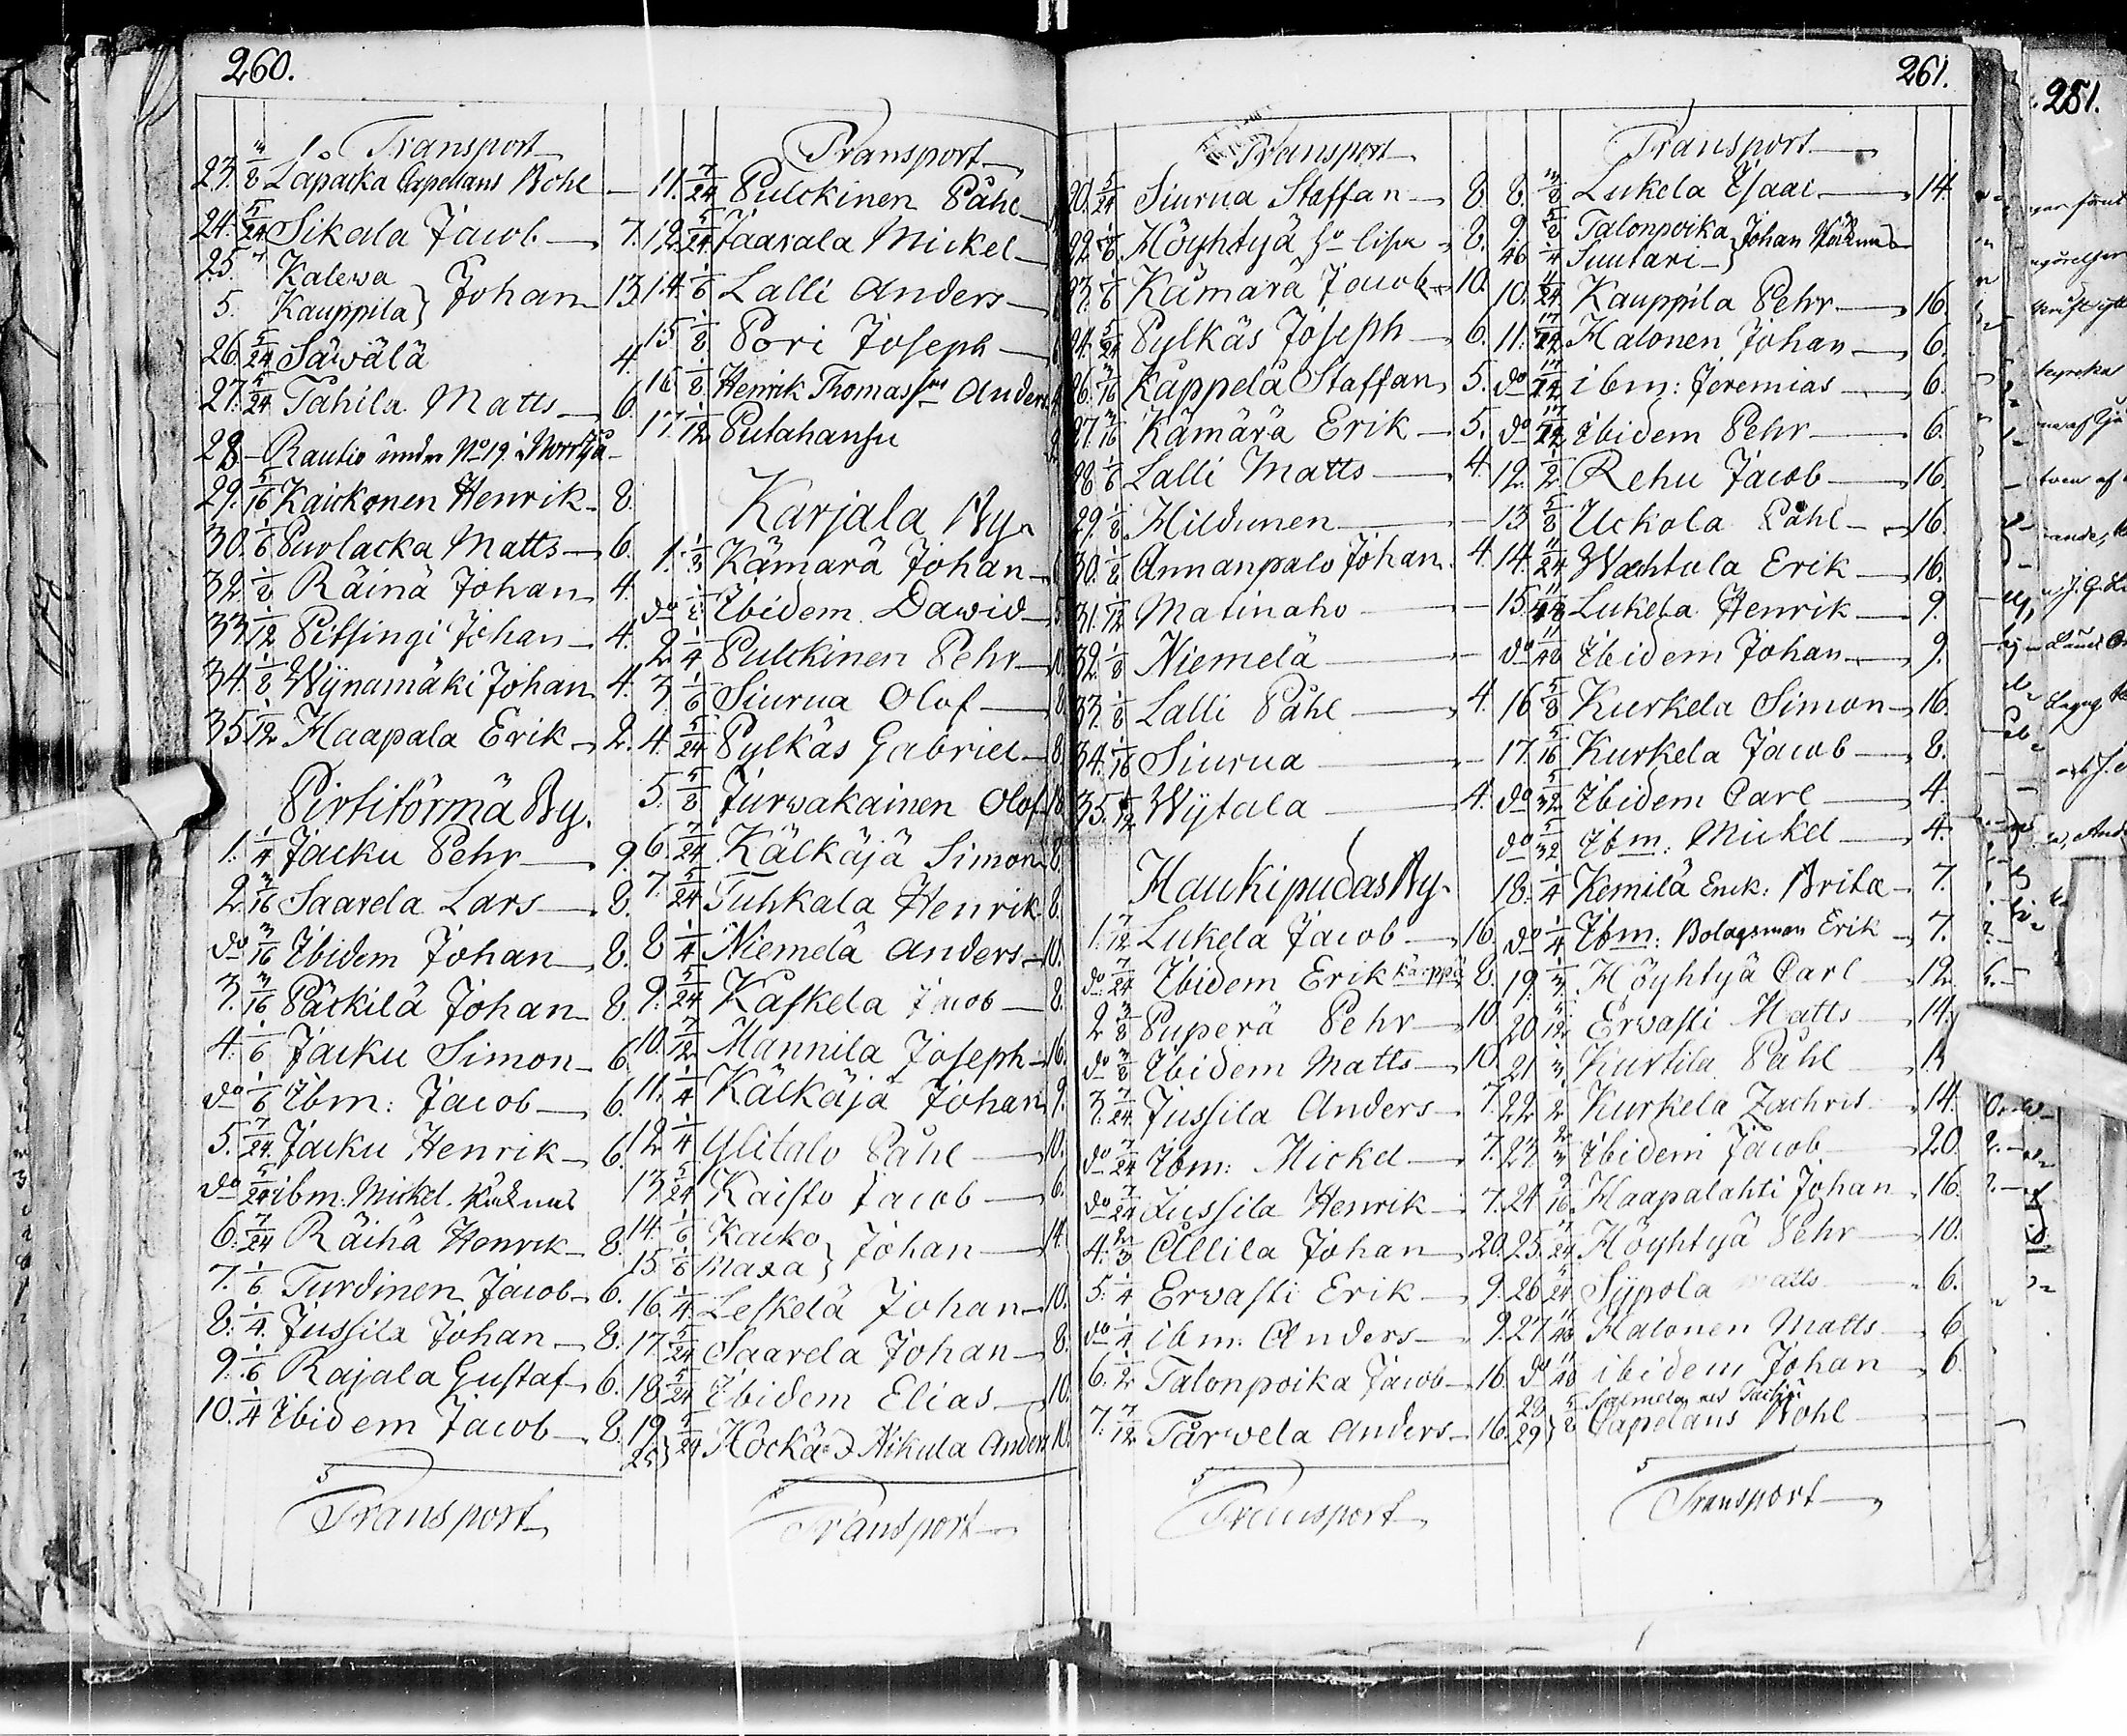 260.
Transport
23. 3/8 Låpacka Capellans Bohl —
24. 5/24 Sikala Jacob — 7.
25. " Kalewa } Johan 13
5. Kauppila
26. 5/24 Säwälä 4.
27. 5/24 Tahila Matts — 6.
28 — Rautio under No 19. i Norr
29. 5/16 Kaickonen Henrik — 8.
30. 1/6 Puolacka Matts — 6.
32. 1/8 Räinä Johan 4.
33. 1/12 Pitsingi Johan — 4.
34. 1/8 Wijnamäki Johan 4.
35. 1/12 Haapala Erik — 2.
Pirtitörmä By.
1. 1/4 Jacku Pehr — 9.
2. 3/16 Saarela Lars — 8.
do 3/16 Ibidem Johan — 8.
3. 3/16 Päckilä Johan 8.
4. 1/6 Jacku Simon — 6.
do 1/6 Ibm: Jacob — 6.
5. 7/24 Jacku Henrik — 6.
do 5/24 ibm: Mickel
6. 7/24 Räihä Henrik — 8.
7. 1/6 Turdinen Jacob — 6.
8. 1/4 Jussila Johan — 8.
9. 1/6 Rajala Gustaf — 6.
10. 1/4 Ibidem Jacob — 8.
Transport
Transport
11. 7/24 Pulckinen Påhl
12. 5/24 Jaarala Mickel
14. 1/6 Lalli Anders —
15 1/8 Pori Joseph —
16 1/8 Henrik Thomasson Anders
17. 1/12 Putahansu
Karjala By.
1. 1/3 Kämärä Johan —
do 1/8 Ibidem Dawid — 5
2. 1/4 Pulckinen Pehr — 10.
3. 1/6 Siurua Olof — 8.
4. 5/24 Pylkäs Gabriel — 8
5. 5/8 Jurwakainen Olof 18
6. 7/24 Kälkäjä Simon 8
7. 5/24 Tuhkala Henrik 8.
8 1/4 Niemelä Anders — 10.
9. 5/24 Kaskela Jacob — 8.
10. 7/12 Mannila Joseph — 16.
11. 1/4 Kälkäjä Johan 9.
12 1/4 Ylitalo Påhl — 10.
13 5/24 Kaisto Jacob — 6.
14. 1/6 Kacko } Johan — 14
15. 1/6 Maxa
16. 1/4 Leskelä Johan — 10.
17. 5/24 Saarela Johan — 8.
18. 5/24 Ibidem Elias — 10.
19. 25 } 5/24 Höckä Nikula Anders 10.
Transport
261.
Transport
20. 5/24 Siurua Staffan — 8.
22. 1/8 Höyhtyä So Lisa — 8.
23. 1/6 Kämärä Jacob — 10.
24. 5/24 Pylkäs Joseph — 6.
26. 3/16 Kåppelä Staffan 5.
27. 3/16 Kämärä Erik — 5.
28 1/6 Lalli Matts — 4.
29. 1/8 Hildunen —
30. 1/8 Annanpalo Johan 4.
31. 1/12 Matinaho —
32. 1/8 Niemelä —
33. 1/8 Lalli Påhl — 4.
34. 1/16 Siurua —
35. 1/12 Wijtala — 4.
Haukipudas By.
1. 7/12 Lukela Jacob — 16.
do 7/24 Ibidem Erik Kärppä 8.
2 3/8 Puperä Pehr — 10.
do 3/8 Ibidem Matts — 10.
3. 7/24 Jussila Anders — 7.
do 7/24 Ibm: Mickel — 7.
do 7/24 Jussila Henrik — 7.
4. 2/3 Allila Johan — 20.
5. 1/4 Ervasti Erik — 9.
do 1/4 ibm: Anders — 9.
6. 1/2 Talonpoika Jacob — 16.
7. 7/12 Tårwela Anders — 16.
Transport
Transport
8. 3/8 Lukela Isaac — 14.
9. 5/8 Talonpoika } Johan
46 1/4 Suutari —
10. 11/24 Kauppila Pehr — 16.
11. 17/72 Halonen Johan — 6.
do 17/72 ibm: Jeremias — 6.
do 17/72 Ibidem Pehr — 6.
12. 1/2 Rehu Jacob — 16.
13 5/8 Uckola Påhl — 16.
14. 11/24 Wachtola Erik — 16.
15. 11/48 Lukela Henrik — 9.
do 11/48 Ibidem Johan — 9.
16 5/8 Kurkela Simon — 16.
17. 5/16 Kurkela Jacob — 8.
do 5/32 Ibidem Carl — 4.
do 5/32 Ibm: Mickel — 4.
18. 1/4 Kemilä Enck: Brita — 7.
do 1/4 Ibm: Bolagsman Erik — 7.
19. 1/3 Höyhtyä Carl — 12.
20 5/12 Ervasti Matts — 14.
21 1/3 Kurtila Påhl —
22 1/2 Kurkela Zachris — 14.
23. 2/3 Ibidem Jacob — 20.
24 9/16 Haapalahti Johan 16.
25. 7/24 Höyhtyä Pehr — 10.
26 5/24 Sijpola Matts — 6.
27. 11/48 Halonen Matts — 6
do 11/48 ibidem Johan — 6.
28 29 } 5/8 Capellans Bohl —
Transport
251.